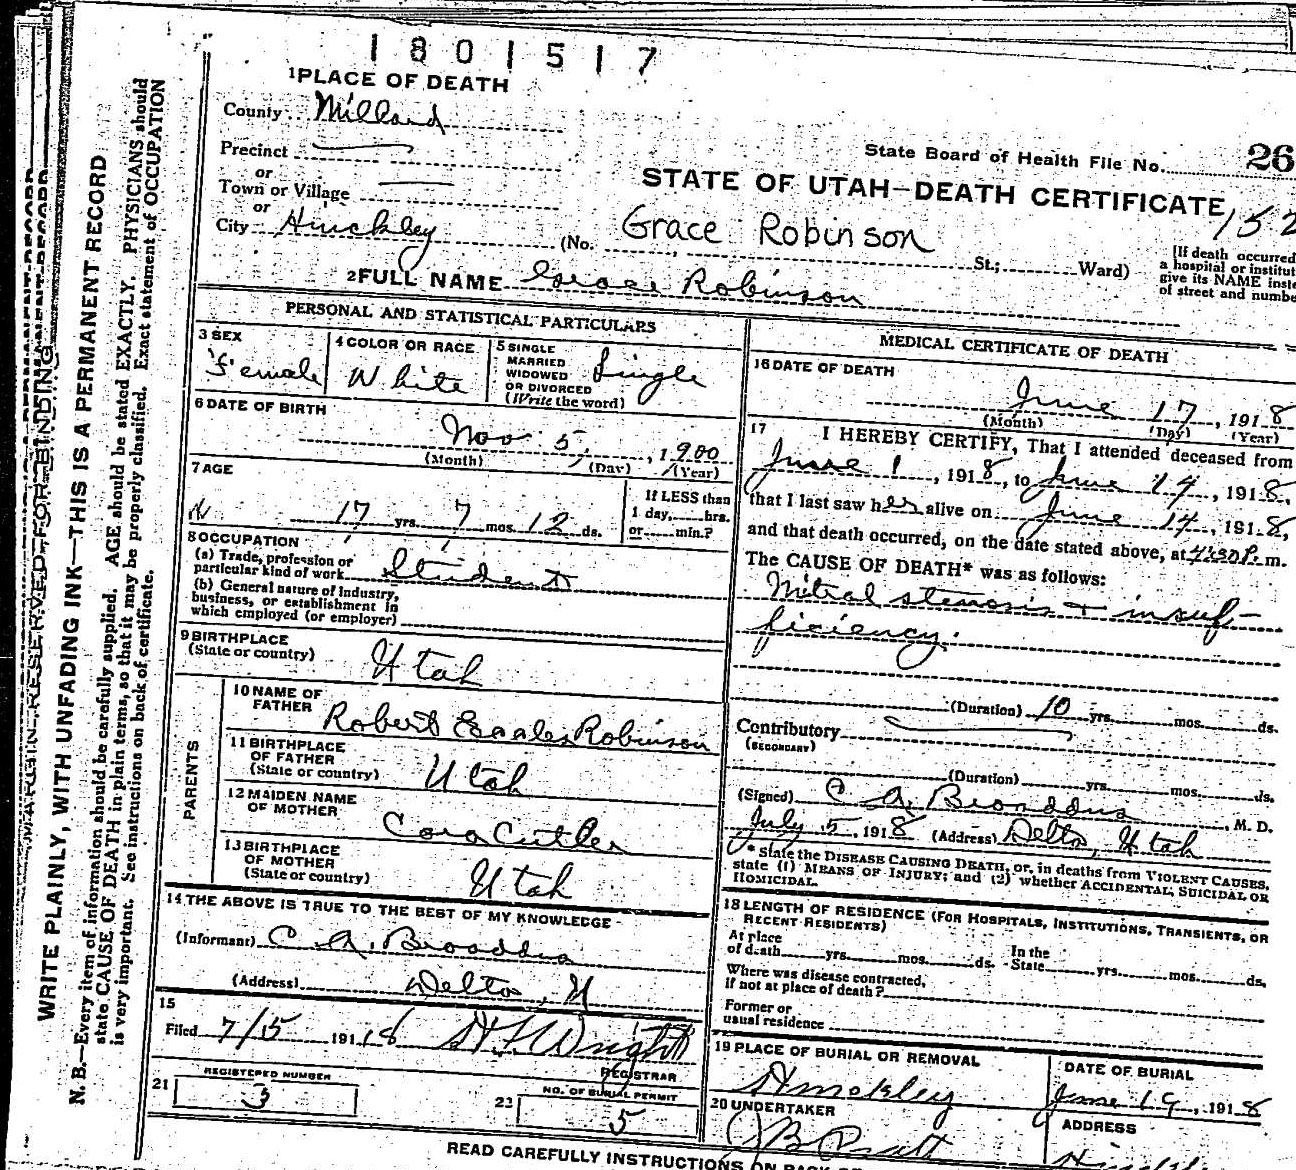 1801517
1 PLACE OF DEATH
County Millard
Precinct
or
Town or Village
or
City Hinckley
(No. St.; Ward)
Grace Robinson
State Board of Health File No. 26
STATE OF UTAH—DEATH CERTIFICATE
152
[If death occurred
a hospital or institut
give its NAME inste
of street and numbe
2 FULL NAME Grace Robinson
PERSONAL AND STATISTICAL PARTICULARS
3 SEX
Female
4 COLOR OR RACE
White
5 SINGLE
MARRIED
WIDOWED
OR DIVORCED
(Write the word)
Single
6 DATE OF BIRTH
Nov 5, 1900
(Month) (Day) (Year)
7 AGE
17 yrs. 7 mos. 12 ds.
If LESS than
1 day, hrs.
or min.?
8 OCCUPATION
(a) Trade, profession or
particular kind of work Student
(b) General nature of Industry,
business, or establishment in
which employed (or employer)
9 BIRTHPLACE
(State or country)
Utah
PARENTS
10 NAME OF
FATHER
Robert Eaales Robinson
11 BIRTHPLACE
OF FATHER
(State or country)
Utah
12 MAIDEN NAME
OF MOTHER
Cora Cutler
13 BIRTHPLACE
OF MOTHER
(State or country)
Utah
14 THE ABOVE IS TRUE TO THE BEST OF MY KNOWLEDGE
(Informant) C. A. Broaddus
(Address) Delta, U
15
Filed 7/15 1918
Wright
REGISTRAR
REGISTERED NUMBER
21 3
NO. OF BURIAL PERMIT
22 5
MEDICAL CERTIFICATE OF DEATH
16 DATE OF DEATH
June 17, 1918
(Month) (Day) (Year)
17 I HEREBY CERTIFY, That I attended deceased from
June 1, 1918, to June 14, 1918,
that I last saw her alive on June 14, 1918,
and that death occurred, on the date stated above, at 4:30 P. m.
The CAUSE OF DEATH* was as follows:
Mitral stenosis + insuf-
ficiency.
(Duration) 10 yrs. mos. ds.
Contributory
(SECONDARY)
(Duration) yrs. mos. ds.
(Signed) C. A. Broaddus, M. D.
July 5, 1918 (Address) Delta, Utah
* State the DISEASE CAUSING DEATH, or, in deaths from VIOLENT CAUSES,
state (1) MEANS OF INJURY; and (2) whether ACCIDENTAL, SUICIDAL OR
HOMICIDAL.
18 LENGTH OF RESIDENCE (FOR HOSPITALS, INSTITUTIONS, TRANSIENTS, OR
RECENT RESIDENTS)
At place
of death yrs. mos. ds.
In the
State yrs. mos. ds.
Where was disease contracted,
if not at place of death?
Former or
usual residence
19 PLACE OF BURIAL OR REMOVAL
Hinckley
DATE OF BURIAL
June 19, 1918
20 UNDERTAKER
J B Pratt
ADDRESS
READ CAREFULLY INSTRUCTIONS ON BACK
MARGIN RESERVED FOR BINDING
WRITE PLAINLY, WITH UNFADING INK—THIS IS A PERMANENT RECORD
N. B.—Every item of information should be carefully supplied. AGE should be stated EXACTLY. PHYSICIANS should
state CAUSE OF DEATH in plain terms, so that it may be properly classified. Exact statement of OCCUPATION
is very important. See instructions on back of certificate.